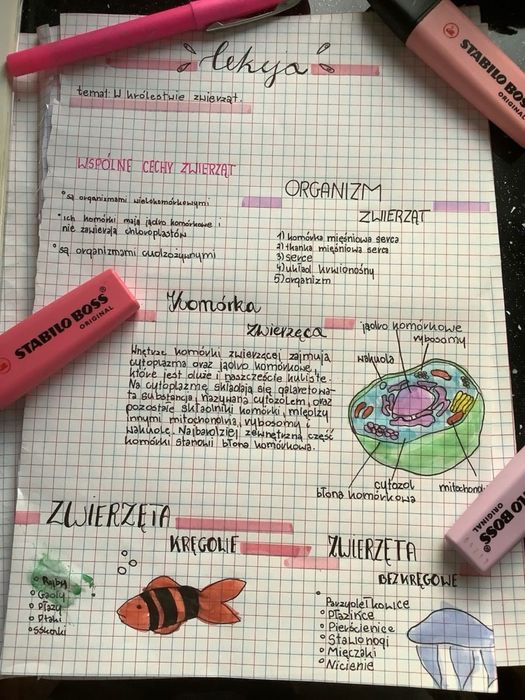 lekcja
temat: W królestwie zwierząt.
WSPÓLNE CECHY ZWIERZĄT
są organizmami wielokomórkowymi
ich komórki mają jądro komórkowe i
nie zawierają chloroplastów
są organizmami cudzożywnymi
ORGANIZM
ZWIERZĄT
1) komórka mięśniowa serca
2) tkanka mięśniowa serca
3) serce
4) układ krwionośny
5) organizm
Komórka
zwierzęca
Wnętrze komórki zwierzęcej zajmują
cytoplazma oraz jądro komórkowe,
które jest duże i najczęściej kuliste.
Na cytoplazmę składają się galaretowa-
ta substancja, nazywana cytozolem, oraz
pozostałe składniki komórki, między
innymi mitochondria, rybosomy i
wakuole. Najbardziej zewnętrzną część
komórki stanowi błona komórkowa.
jądro komórkowe
rybosomy
wakuola
cytozol
mitochond
błona komórkowa
ZWIERZĘTA
KRĘGOWE
Ryby
Gady
Płazy
Ptaki
Ssaki
ZWIERZĘTA
BEZKRĘGOWE
Parzydełkowce
Płazińce
Pierścienice
Stawonogi
Mięczaki
Nicienie
STABILO BOSS
ORIGINAL
STABILO BOSS
ORIGINAL
STABILO BOSS
ORIGINAL